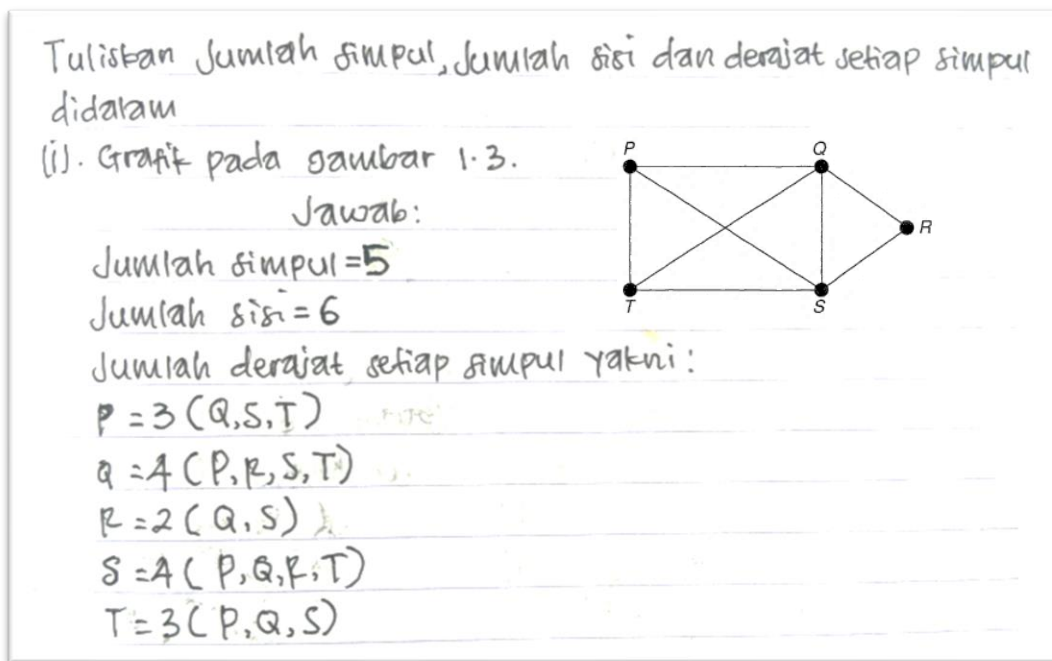 Tuliskan Jumlah simpul, Jumlah sisi dan derajat setiap simpul
didalam
(i). Grafik pada gambar 1.3.
Jawab:
Jumlah simpul = 5
Jumlah sisi = 6
Jumlah derajat setiap simpul yakni :
P = 3 (Q, S, T)
Q = 4 (P, R, S, T)
R = 2 (Q, S)
S = 4 (P, Q, R, T)
T = 3 (P, Q, S)
P Q
R
T S